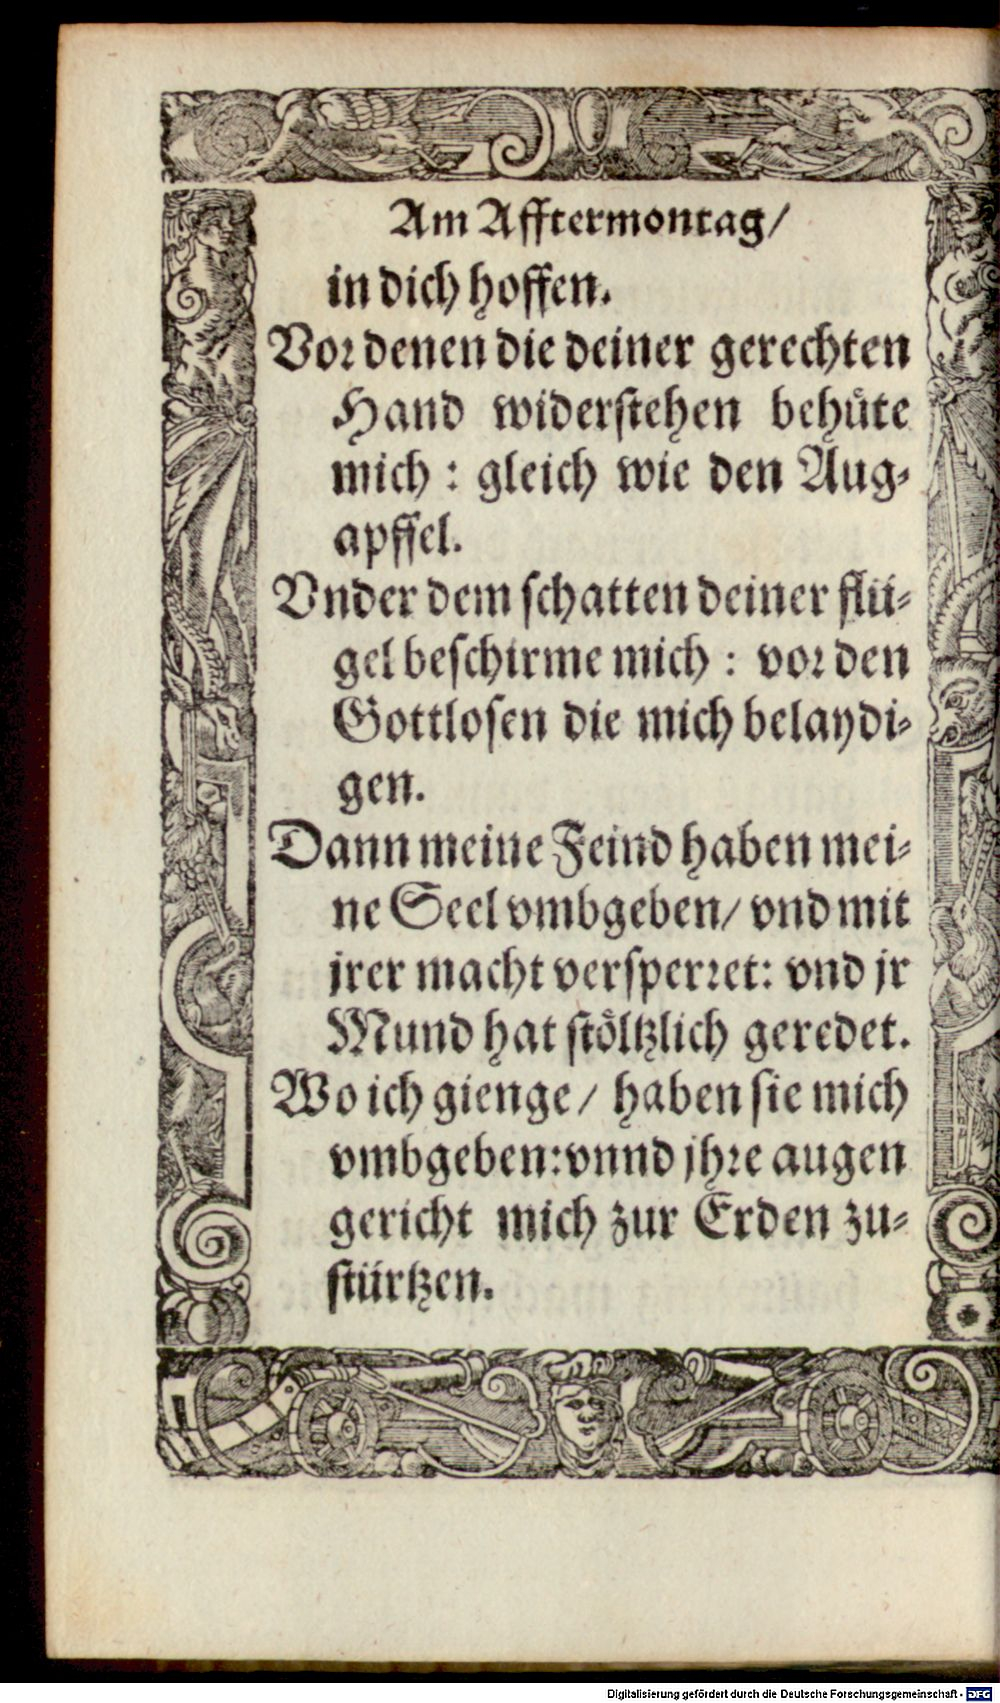 Am Afftermontag/
in dich hoffen.
Vor denen die deiner gerechten
Hand widerstehen behüte
mich : gleich wie den Aug-
apffel.
Vnder dem schatten deiner flü-
gel beschirme mich : vor den
Gottlosen die mich belaydi-
gen.
Dann meine Feind haben mei-
ne Seel vmbgeben/ vnd mit
jrer macht versperret: vnd jr
Mund hat stöltzlich geredet.
Wo ich gienge/ haben sie mich
vmbgeben: vnnd jhre augen
gericht mich zur Erden zu-
stürtzen.
Digitalisierung gefördert durch die Deutsche Forschungsgemeinschaft - DFG